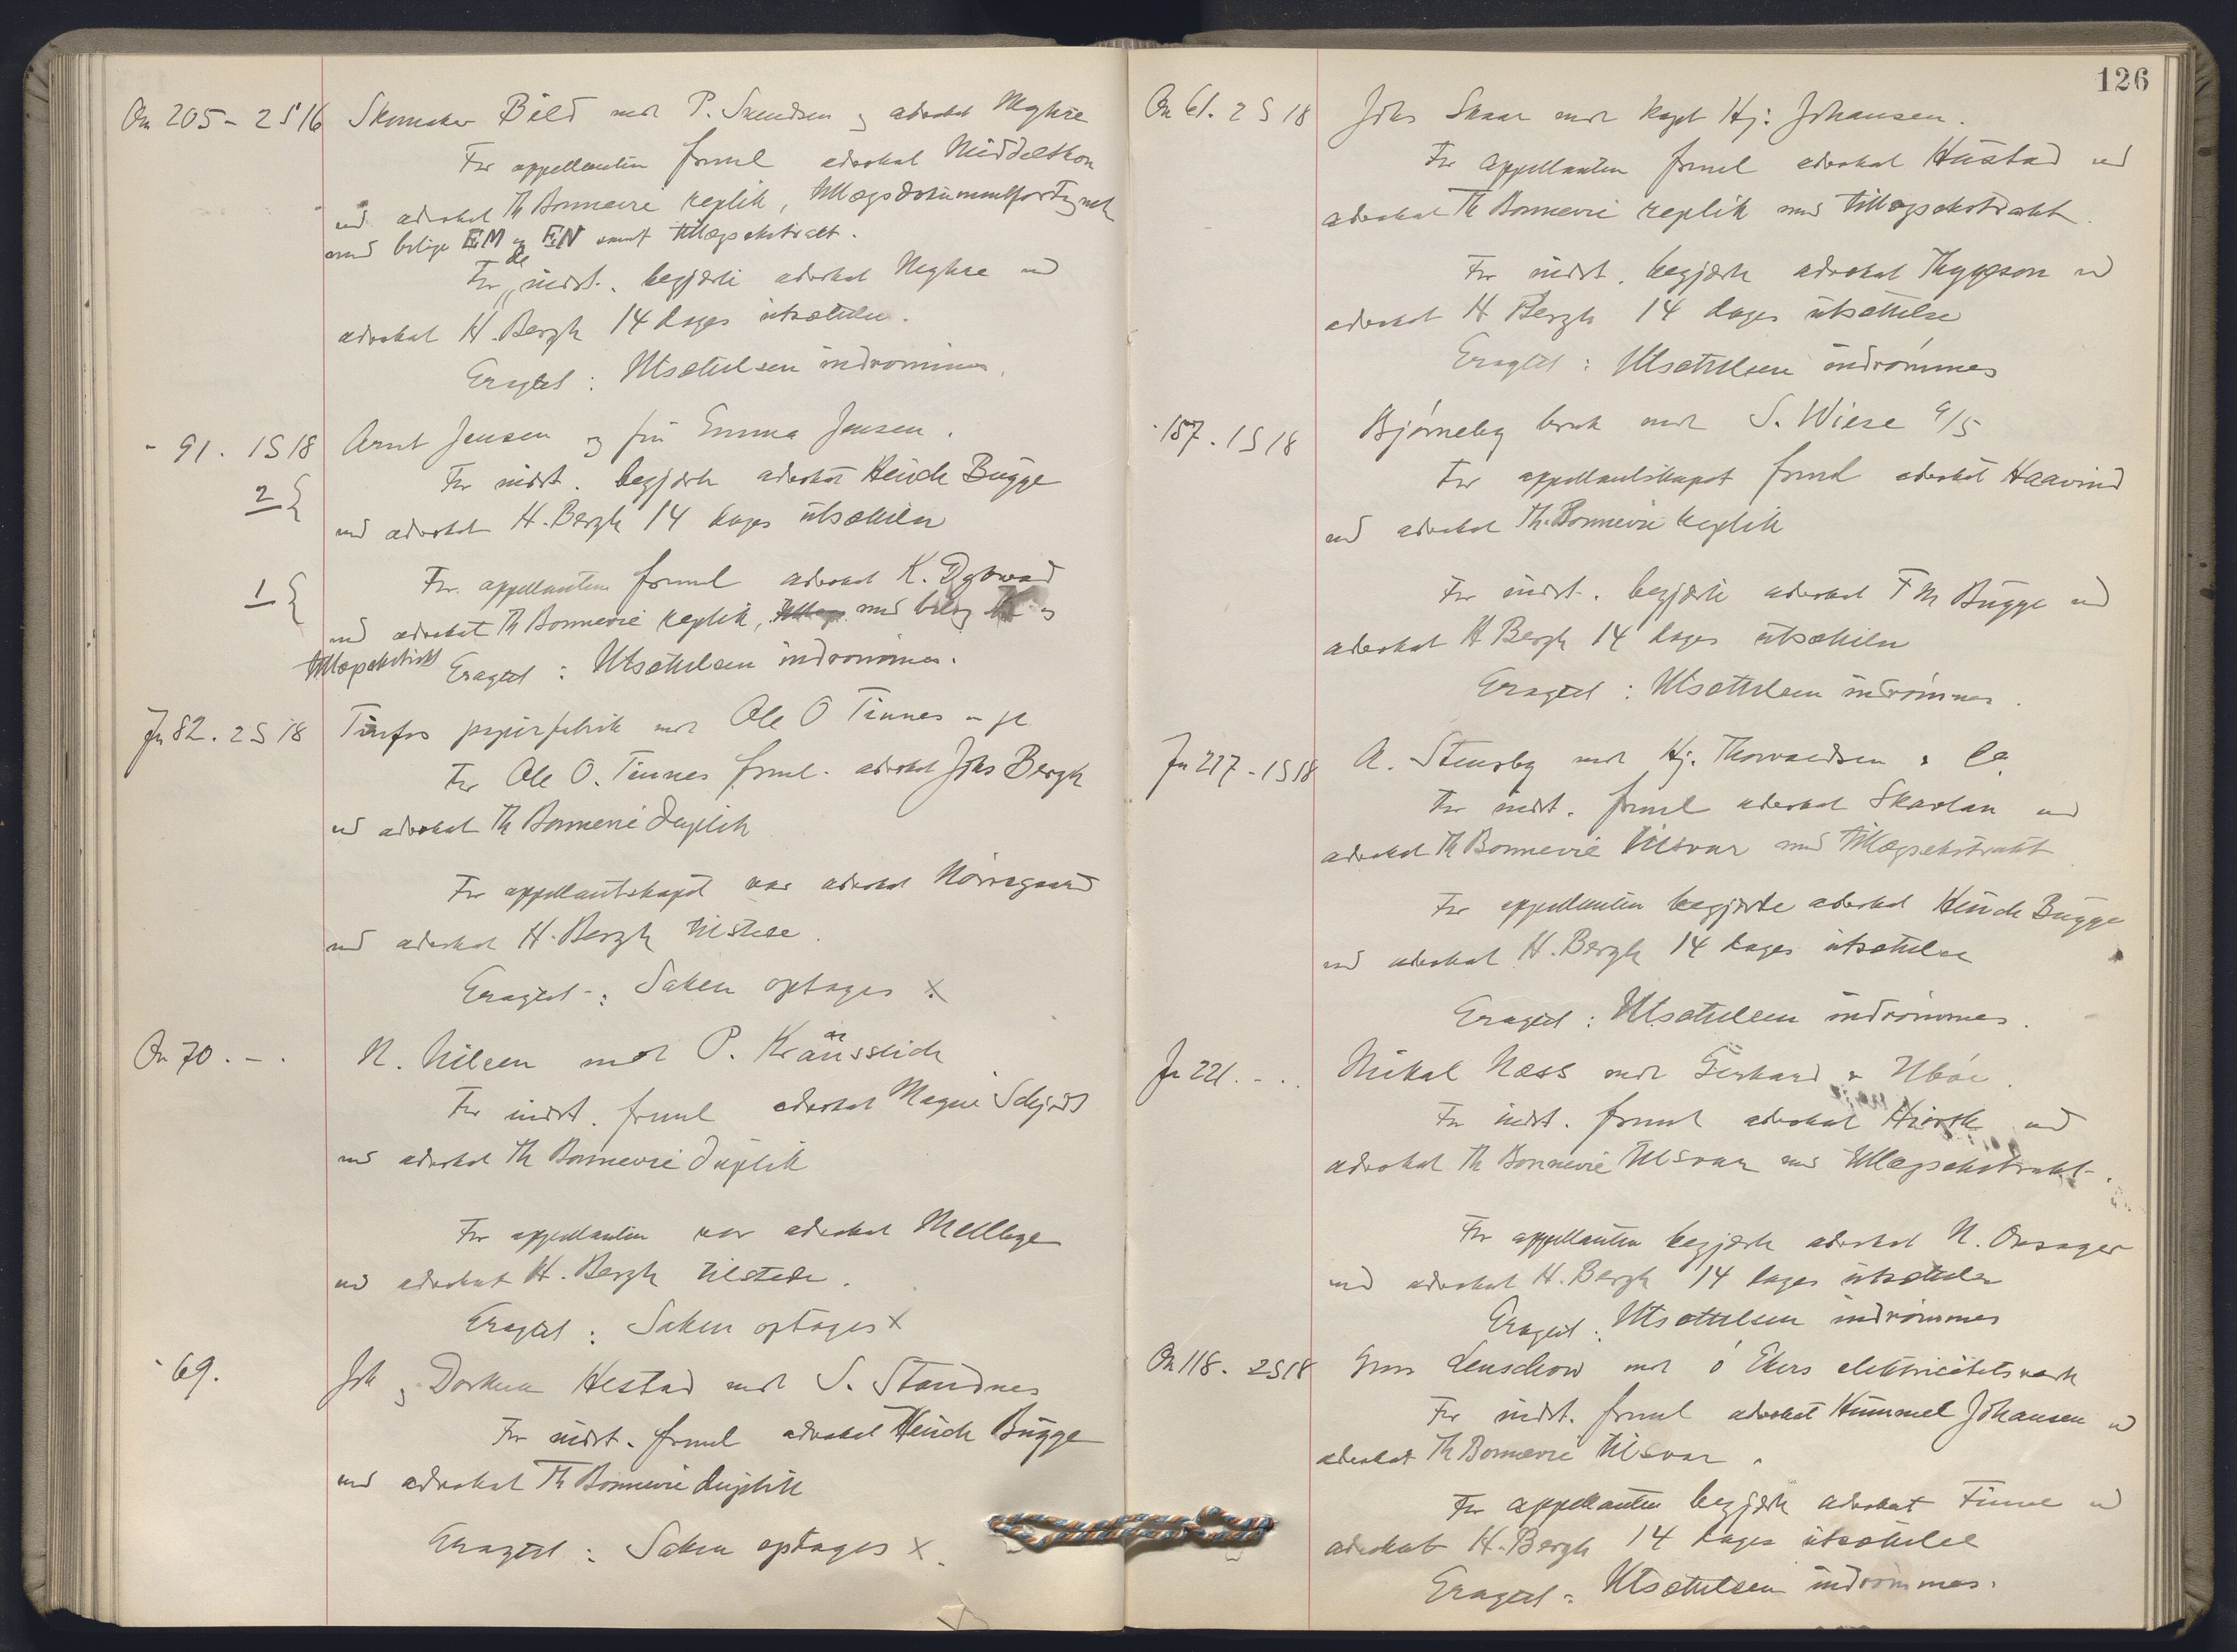 An 205 - 2 S 16 Skomaker Bild mot P. Svendsen og advokat Myhre
For appellanten freml advokat Middelthon
ved advokat Th Bonnevie replik, tillægsdokumentfortegnelse
med bilage EM og EN samt tillægsekstrakt.
For de indst. begjærte advokat Myhre ved
advokat H. Bergh 14 dages utsættelse.
Eragtet : Utsættelsen indrømmes.
- 91. 1 S 18 Arnt Jensen og fru Emma Jensen.
For indst. begjærte advokat Heidr Bugge
2 { ved advokat H. Bergh 14 dages utsættelse
For appellanten freml advokat K. Dybwad
1 { ved advokat Th Bonnevie replik, med bilag og
tillægsekstrakt Eragtet : Utsættelsen indrømmes.
Ju 82. 2 S 18 Tinfos papirfabrik mot Ole O Tinnes
For Ole O. Tinnes freml. advokat Johs Bergh
ved advokat Th Bonnevie duplik
For appellantskapet var advokat Nørregaard
ved advokat H. Bergh tilstede.
Eragtet : Saken optages X.
An 70. - . N. Nilsen mot P. Kräusslich
For indst. freml advokat Magne Schjødt
ved advokat Th Bonnevie duplik
For appellanten var advokat Mellbye
ved advokat H. Bergh tilstede.
Eragtet : Saken optages X
- 69. Joh og Dorthea Hestad mot S. Standnes
For indst. freml advokat Heidr Bugge
ved advokat Th Bonnevie duplik
Eragtet : Saken optages X.
126
An 61. 2 S 18 Johs Skaar mot kapt Hj: Johansen.
For appellanten freml advokat Hustad ved
advokat Th Bonnevie replik med tillægsekstrakt.
For indst. begjærte advokat Thygeson ved
advokat H Bergh 14 dages utsættelse
Eragtet : Utsættelsen indrømmes
- 157. 1 S 18 Bjørneby bruk mot S. Wiese A/S
For appellantskapet freml advokat Haavind
ved advokat Th. Bonnevie replik
For indst. begjærte advokat F M Bugge ved
advokat H Bergh 14 dages utsættelse
Eragtet : Utsættelsen indrømmes.
Ju 217 - 1 S 18 A. Stensby mot Hj. Thorvaldsen & Co.
For indst. freml advokat Skavlan ved
advokat Th Bonnevie tilsvar med tillægsekstrakt
For appellanten begjærte advokat Heidr Bugge
ved advokat H. Bergh 14 dages utsættelse
Eragtet : Utsættelsen indrømmes.
Ju 221. - . . Mikal Næss mot Gerhard & Ubøe.
For indst. freml advokat ved
advokat Th Bonnevie tilsvar med tillægsekstrakt.
For appellanten begjærte advokat N. Onsager
ved advokat H. Bergh 14 dages utsættelse
Eragtet : Utsættelsen indrømmes
An 118. 2 S 18 Lenschow mot ø Ekers elektricitetsverk
For indst. freml advokat Hummel Johansen ved
advokat Th Bonnevie tilsvar.
For appellanten begjærte advokat Finne ved
advokat H. Bergh 14 dages utsættelse
Eragtet : Utsættelsen indrømmes.